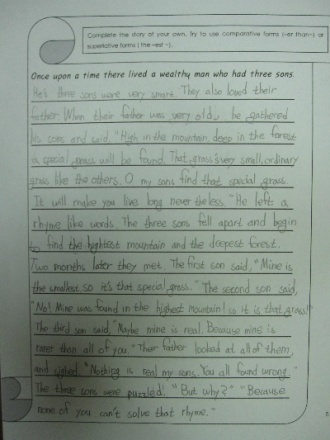 Complete the story of your own. Try to use comparative forms (-er than~) or
superlative forms ( the -est ~).
Once upon a time there lived a wealthy man who had three sons.
He's three sons were very smart. They also loved their
father. When their father was very old, he gathered
his sons and said, "High in the mountain, deep in the forest
a special grass will be found. That grass's very small, ordinary
grass like the others. O my sons find that special grass.
It will make you live long never the less." He left a
rhyme like words. The three sons fell apart and begin
to find the hightest mountain and the deepest forest.
Two months later they met. The first son said, "Mine is
the smallest so it's that special grass." The second son said,
"No! Mine was found in the highest mountain! so it is that grass!"
The third son said, "Maybe mine is real. Because mine is
than all of you." Their father looked at all of them,
and sighed. "Nothing is real my sons. You all found wrong."
The three sons were puzzled. "But why?" "Because
none of you can't solve that rhyme."